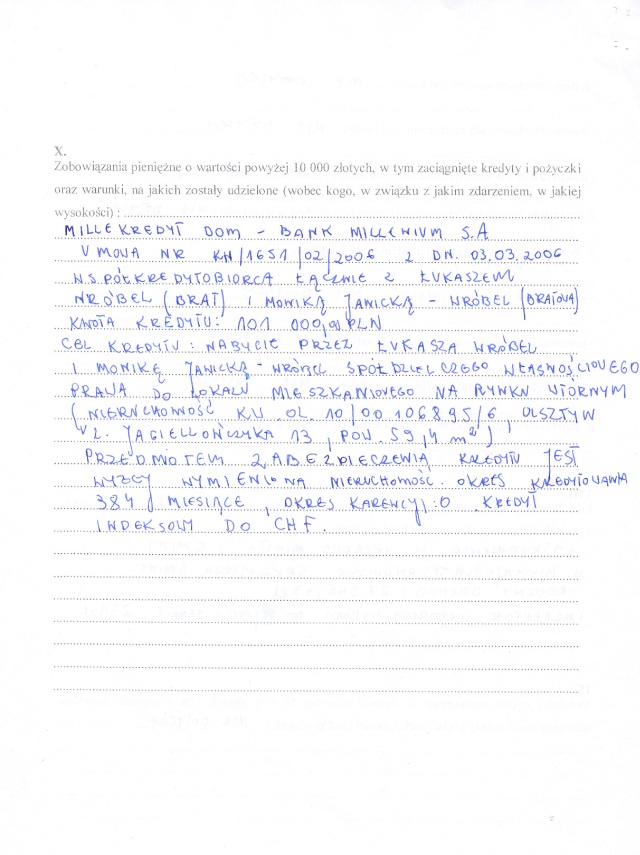 X.
Zobowiązania pieniężne o wartości powyżej 10 000 złotych, w tym zaciągnięte kredyty i pożyczki
oraz warunki, na jakich zostały udzielone (wobec kogo, w związku z jakim zdarzeniem, w jakiej
wysokości) :
MILLEKREDYT DOM - BANK MILLENIUM S.A
UMOWA NR KH/1651/02/2006 Z DN. 03.03.2006
WSPÓŁKREDYTOBIORCA ŁĄCZNIE Z ŁUKASZEM
WRÓBEL (BRAT) I MONIKĄ JANICKĄ - WRÓBEL (BRATOWA)
KWOTA KREDYTU: 101 000,00 PLN
CEL KREDYTU: NABYCIE PRZEZ ŁUKASZA WRÓBEL
I MONIKĘ JANICKĄ - WRÓBEL SPÓŁDZIELCZEGO WŁASNOŚCIOWEGO
PRAWA DO LOKALU MIESZKANIOWEGO NA RYNKU WTÓRNYM
(NIERUCHOMOŚĆ KW. OL. 10/00106895/6, OLSZTYN
UL. JAGIELLOŃCZYKA 13, POW. 59,4 m²)
PRZEDMIOTEM ZABEZPIECZENIA KREDYTU JEST
WYŻEJ WYMIENIONA NIERUCHOMOŚĆ. OKRES KREDYTOWANIA
384 MIESIĄCE, OKRES KARENCJI: 0. KREDYT
INDEKSOW. DO CHF.